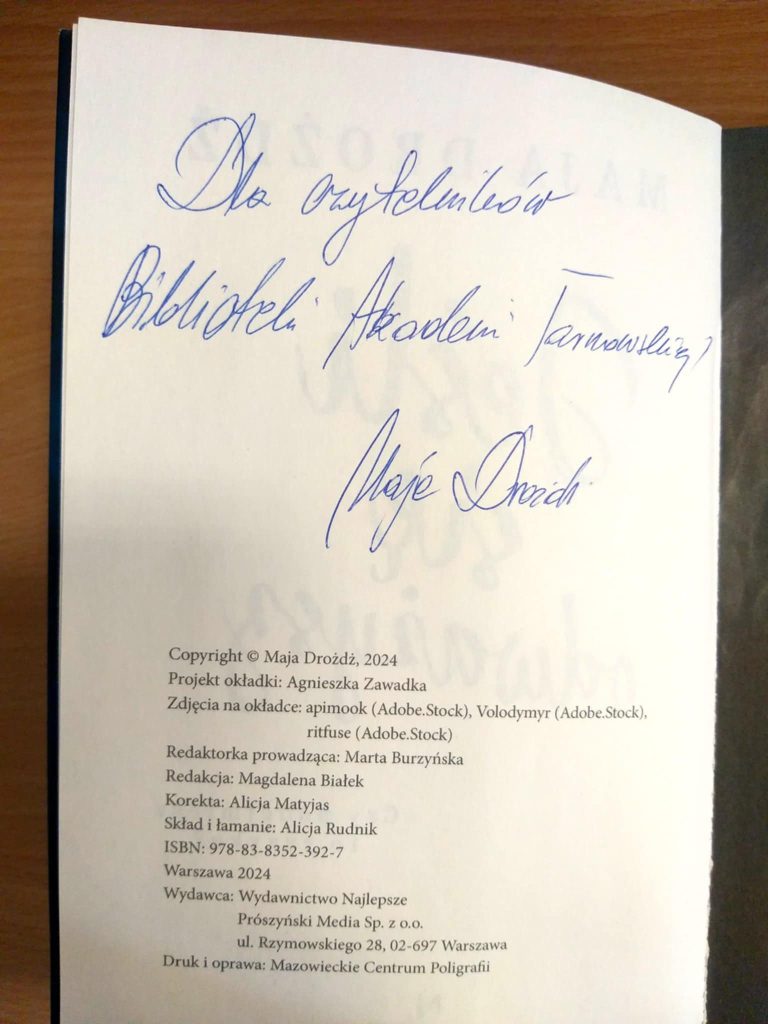 Dla czytelników
Biblioteki Akademii Tarnowskiej
Maja Drożdż
Copyright © Maja Drożdż, 2024
Projekt okładki: Agnieszka Zawadka
Zdjęcia na okładce: apimook (Adobe.Stock), Volodymyr (Adobe.Stock),
ritfuse (Adobe.Stock)
Redaktorka prowadząca: Marta Burzyńska
Redakcja: Magdalena Białek
Korekta: Alicja Matyjas
Skład i łamanie: Alicja Rudnik
ISBN: 978-83-8352-392-7
Warszawa 2024
Wydawca: Wydawnictwo Najlepsze
Prószyński Media Sp. z o.o.
ul. Rzymowskiego 28, 02-697 Warszawa
Druk i oprawa: Mazowieckie Centrum Poligrafii